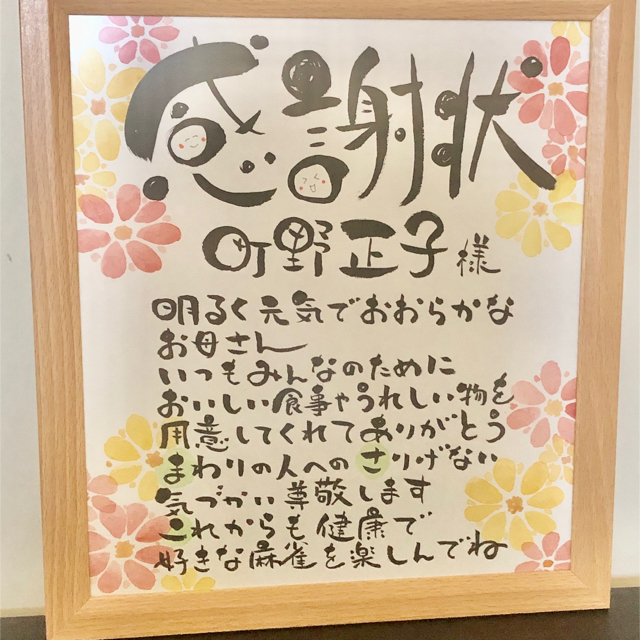 感謝状
町野正子様
明るく元気でおおらかな
お母さん
いつもみんなのために
おいしい食事やうれしい物を
用意してくれてありがとう
まわりの人へのさりげない
気づかい尊敬します
これからも健康で
好きな麻雀を楽しんでね